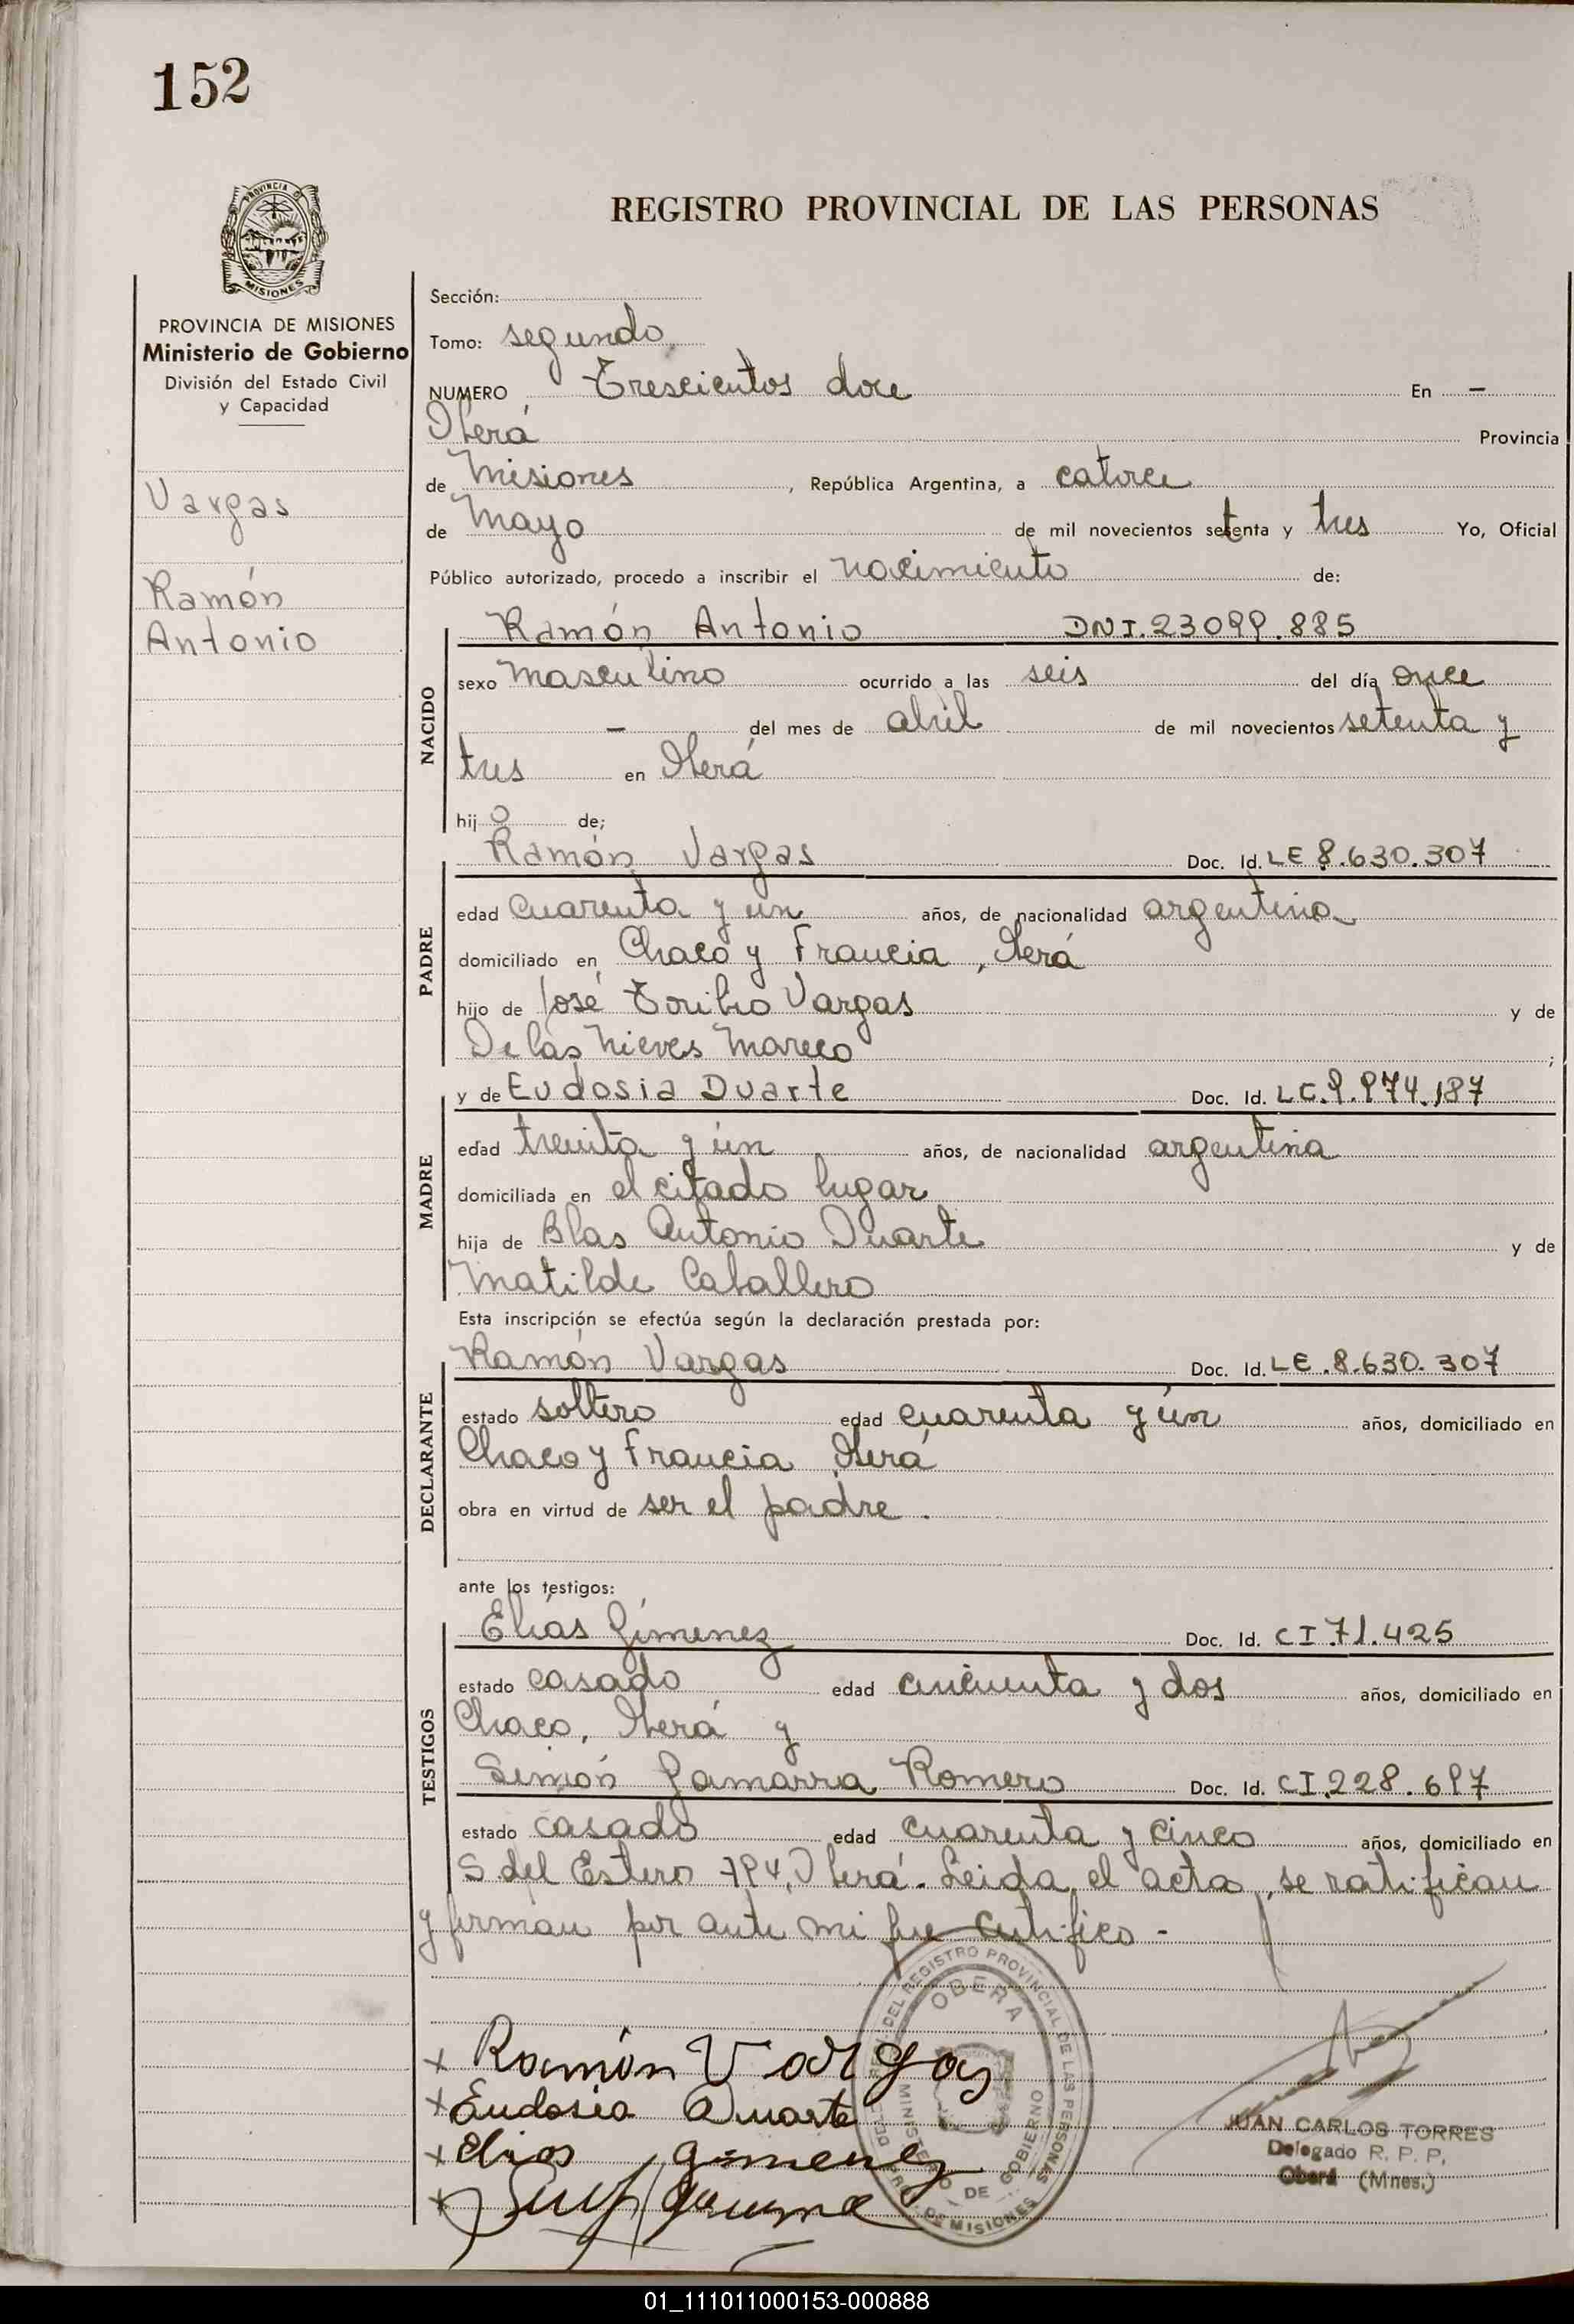 152
PROVINCIA DE
MISIONES
REGISTRO PROVINCIAL DE LAS PERSONAS
PROVINCIA DE MISIONES
Ministerio de Gobierno
División del Estado Civil
y Capacidad
Vargas
Ramón
Antonio
Sección:
Tomo: segundo
NUMERO Trescientos doce En -
Oberá Provincia
de Misiones, República Argentina, a catorce
de Mayo de mil novecientos setenta y tres Yo, Oficial
Público autorizado, procedo a inscribir el nacimiento de:
NACIDO
Ramón Antonio DNI.23099.885
sexo masculino ocurrido a las seis del día once
- del mes de abril de mil novecientos setenta y
tres en Oberá
hijo de;
PADRE
Ramón Vargas Doc. Id. LE 8.630.307
edad cuarenta y un años, de nacionalidad argentina
domiciliado en Chaco y Francia, Oberá
hijo de José Toribio Vargas y de
De las Nieves Mareco ;
MADRE
y de Eudosia Duarte Doc. Id. LC.9.974.187
edad treinta y un años, de nacionalidad argentina
domiciliada en el citado lugar
hija de Blas Antonio Duarte y de
Matilde Caballero
Esta inscripción se efectúa según la declaración prestada por:
DECLARANTE
Ramón Vargas Doc. Id. LE.8.630.307
estado soltero edad cuarenta y un años, domiciliado en
Chaco y Francia Oberá
obra en virtud de ser el padre.
ante los testigos:
TESTIGOS
Elías Gímenez Doc. Id. CI.71.425
estado casado edad cincuenta y dos años, domiciliado en
Chaco, Oberá y
Simón Gamarra Romero Doc. Id. CI.228.697
estado casado edad cuarenta y cinco años, domiciliado en
S del Estero 794, Oberá. Leida el acta, se ratifican
y firman por ante mi que certifico -
x Ramón Vargas
x Eudosia Duarte
x Elias gimenez
x
DEL REGISTRO PROVINCIAL DE LAS PERSONAS
OBERA
MINISTERIO DE GOBIERNO
DE MISIONES
JUAN CARLOS TORRES
Delegado R. P. P.
Oberá (Mnes.)
01_111011000153-000888